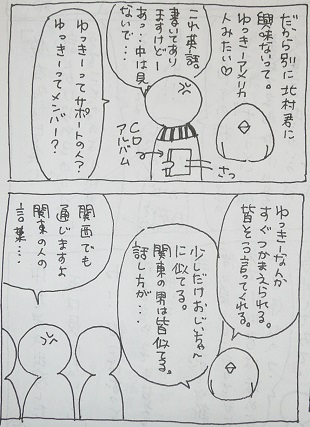 だから別に北村君に
興味ないって。
ゆっきーアメリカ
人みたい♡
これ英語
書いてあり
ますけどー
あっ…中は見
ないで…
さっ
CD
アルバム
ゆっきーってサポートの人?
ゆっきーってメンバー?
ゆっきーなんか
すぐつかまえられる。
皆そう言ってくれる。
少しだけおじいちゃん
に似てる。
関東の男は皆似てる。
話し方が…
関西でも
通じますよ
関東の人の
言葉…